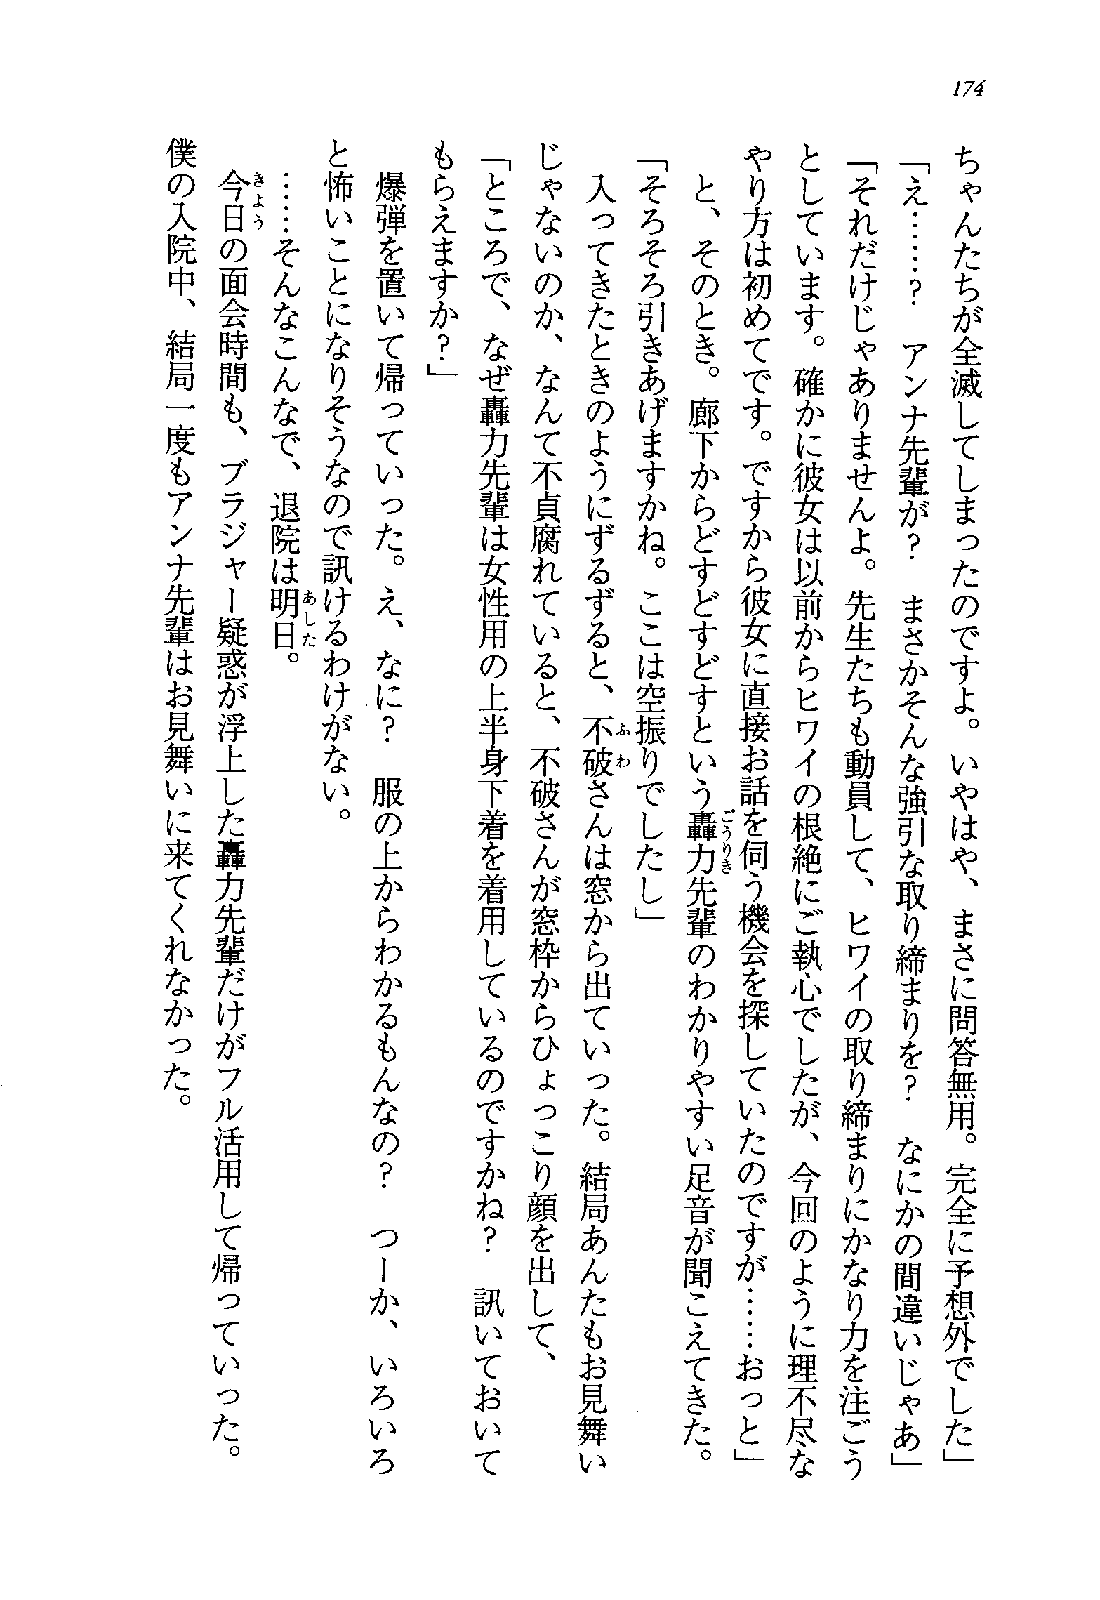 174
ちゃんたちが全滅してしまったのですよ。いやはや、まさに問答無用。完全に予想外でした」
「え……？　アンナ先輩が？　まさかそんな強引な取り締まりを？　なにかの間違いじゃあ」
「それだけじゃありませんよ。先生たちも動員して、ヒワイの取り締まりにかなり力を注ごう
としています。確かに彼女は以前からヒワイの根絶にご執心でしたが、今回のように理不尽な
やり方は初めてです。ですから彼女に直接お話を伺う機会を探していたのですが……おっと」
　と、そのとき。廊下からどすどすどすという轟力先輩のわかりやすい足音が聞こえてきた。
「そろそろ引きあげますかね。ここは空振りでしたし」
　入ってきたときのようにずるずると、不破さんは窓から出ていった。結局あんたもお見舞い
じゃないのか、なんて不貞腐れていると、不破さんが窓枠からひょっこり顔を出して、
「ところで、なぜ轟力先輩は女性用の上半身下着を着用しているのですかね？　訊いておいて
もらえますか？」
　爆弾を置いて帰っていった。え、なに？　服の上からわかるもんなの？　つーか、いろいろ
と怖いことになりそうなので訊けるわけがない。
　……そんなこんなで、退院は明日。
　今日の面会時間も、ブラジャー疑惑が浮上した轟力先輩だけがフル活用して帰っていった。
僕の入院中、結局一度もアンナ先輩はお見舞いに来てくれなかった。